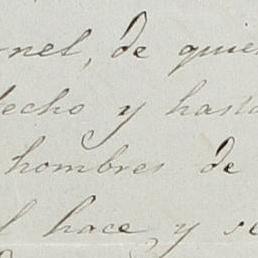 nel, de quie
echo y hasta
hombres de
l hace, y se